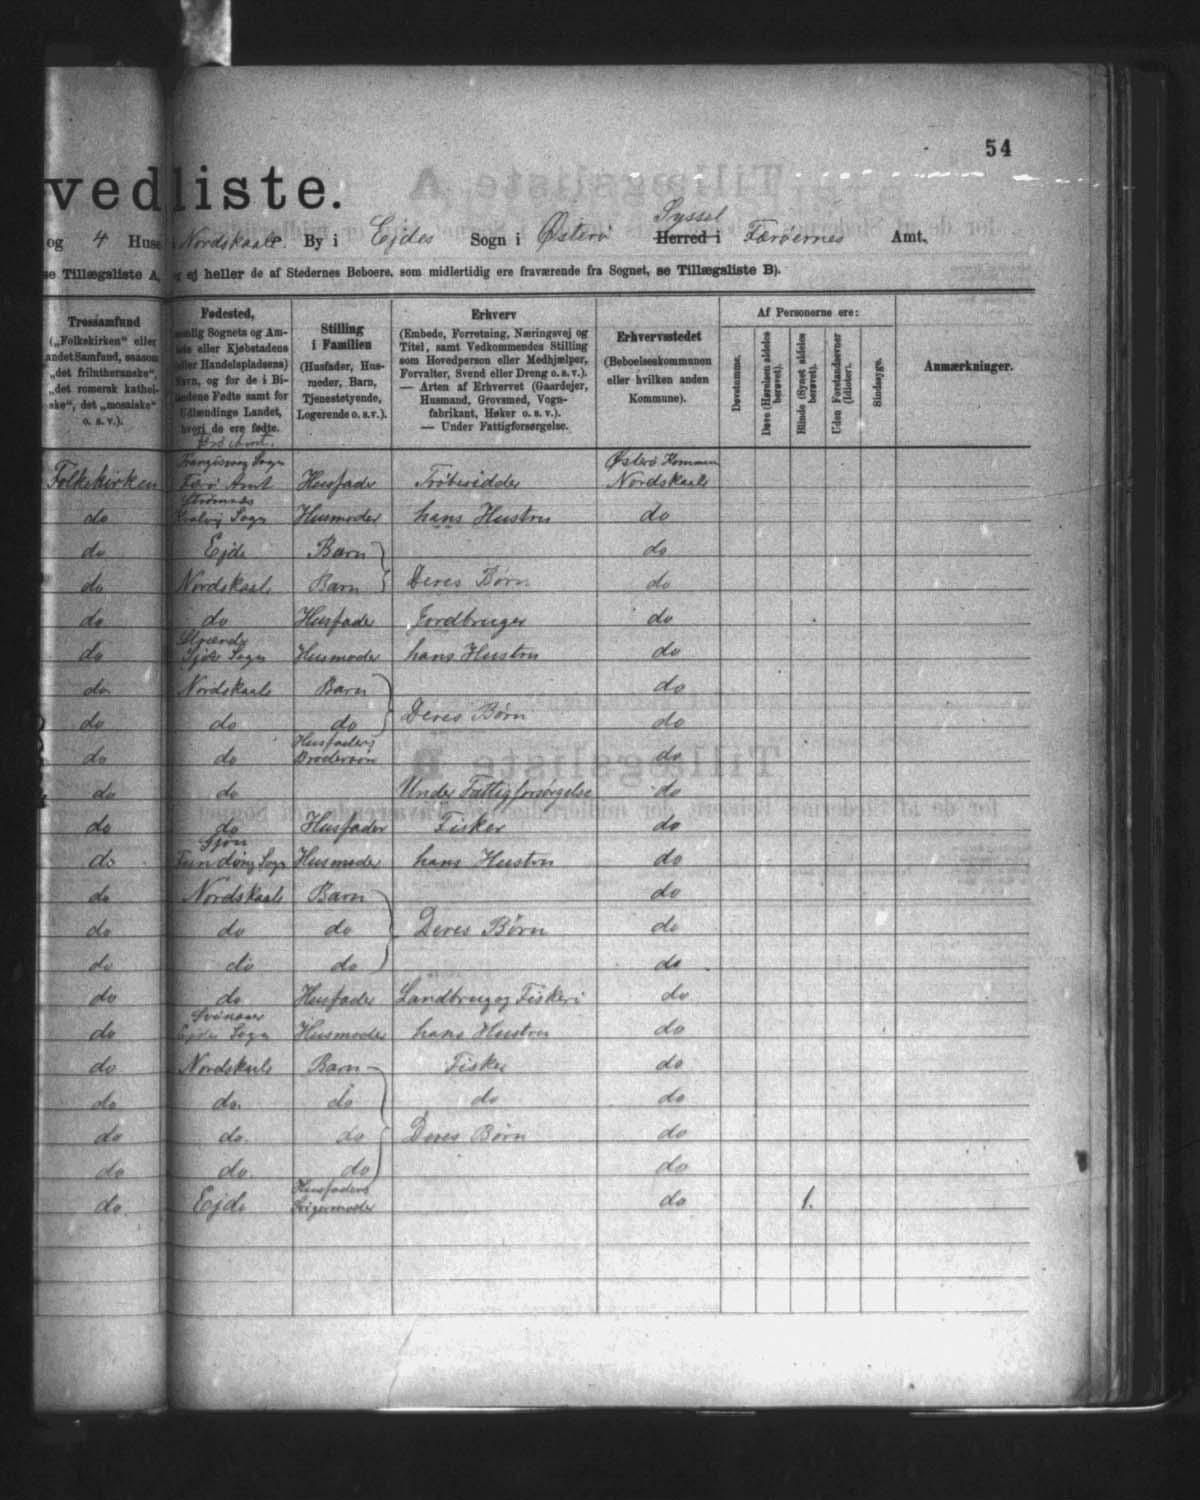 54
vedliste.
og 4 Huse i Nordskaale By i Ejdes Sogn i Østerø Syssel Herred i Færøernes Amt.
se Tillægsliste A, og ej heller de af Stedernes Beboere, som midlertidig ere fraværende fra Sognet, se Tillægsliste B).
Trossamfund
(„Folkekirken“ eller
andet Samfund, saasom
„det frilutheranske“,
„det romersk kathol-
ske“, det „mosaiske“
o. s. v.).
Fødested,
nemlig Sognets og Am-
tets eller Kjøbstadens
(eller Handelspladsens)
Navn, og for de i Bi-
landene Fødte samt for
Udlændinge Landet,
hvori de ere fødte.
Stilling
i Familien
(Husfader, Hus-
moder, Barn,
Tjenestetyende,
Logerende o. s. v.).
Erhverv
(Embede, Forretning, Næringsvej og
Titel, samt Vedkommendes Stilling
som Hovedperson eller Medhjælper,
Forvalter, Svend eller Dreng o. s. v.).
— Arten af Erhvervet (Gaardejer,
Husmand, Grovsmed, Vogn-
fabrikant, Høker o. s. v.).
— Under Fattigforsørgelse.
Erhvervsstedet
(Beboelseskommunen
eller hvilken anden
Kommune).
Af Personerne ere:
Døvstumme.
Døve (Hørelsen aldeles berøvet).
Blinde (Synet aldeles berøvet).
Uden Forstandsevner (Idioter).
Sindssyge.
Anmærkninger.
Sogn Østerø Kommun
Folkekirken Færø Amt Husfader Nordskaale
do Sogn Husmoder hans Hustru do
do Ejde Barn do
do Nordskaale Barn Deres Børn do
do do Husfader Jordbruger do
do Ejde Sogn Husmoder hans Hustru do
do Nordskaale Barn do
do do do Deres Børn do
do do Husfaders Brodersøn do
do do Under Fattigforsørgelse do
do do Husfader Fisker do
do Funding Sogn Husmoder hans Hustru do
do Nordskaale Barn do
do do do Deres Børn do
do do do do
do do Husfader Landbrug og Fiskeri do
do Svinaaer Ejdes Sogn Husmoder hans Hustru do
do Nordskaale Barn Fisker do
do do. do do do
do do. do Deres Børn do
do do. do do
do. Ejde Husfaders Svigermoder do 1.